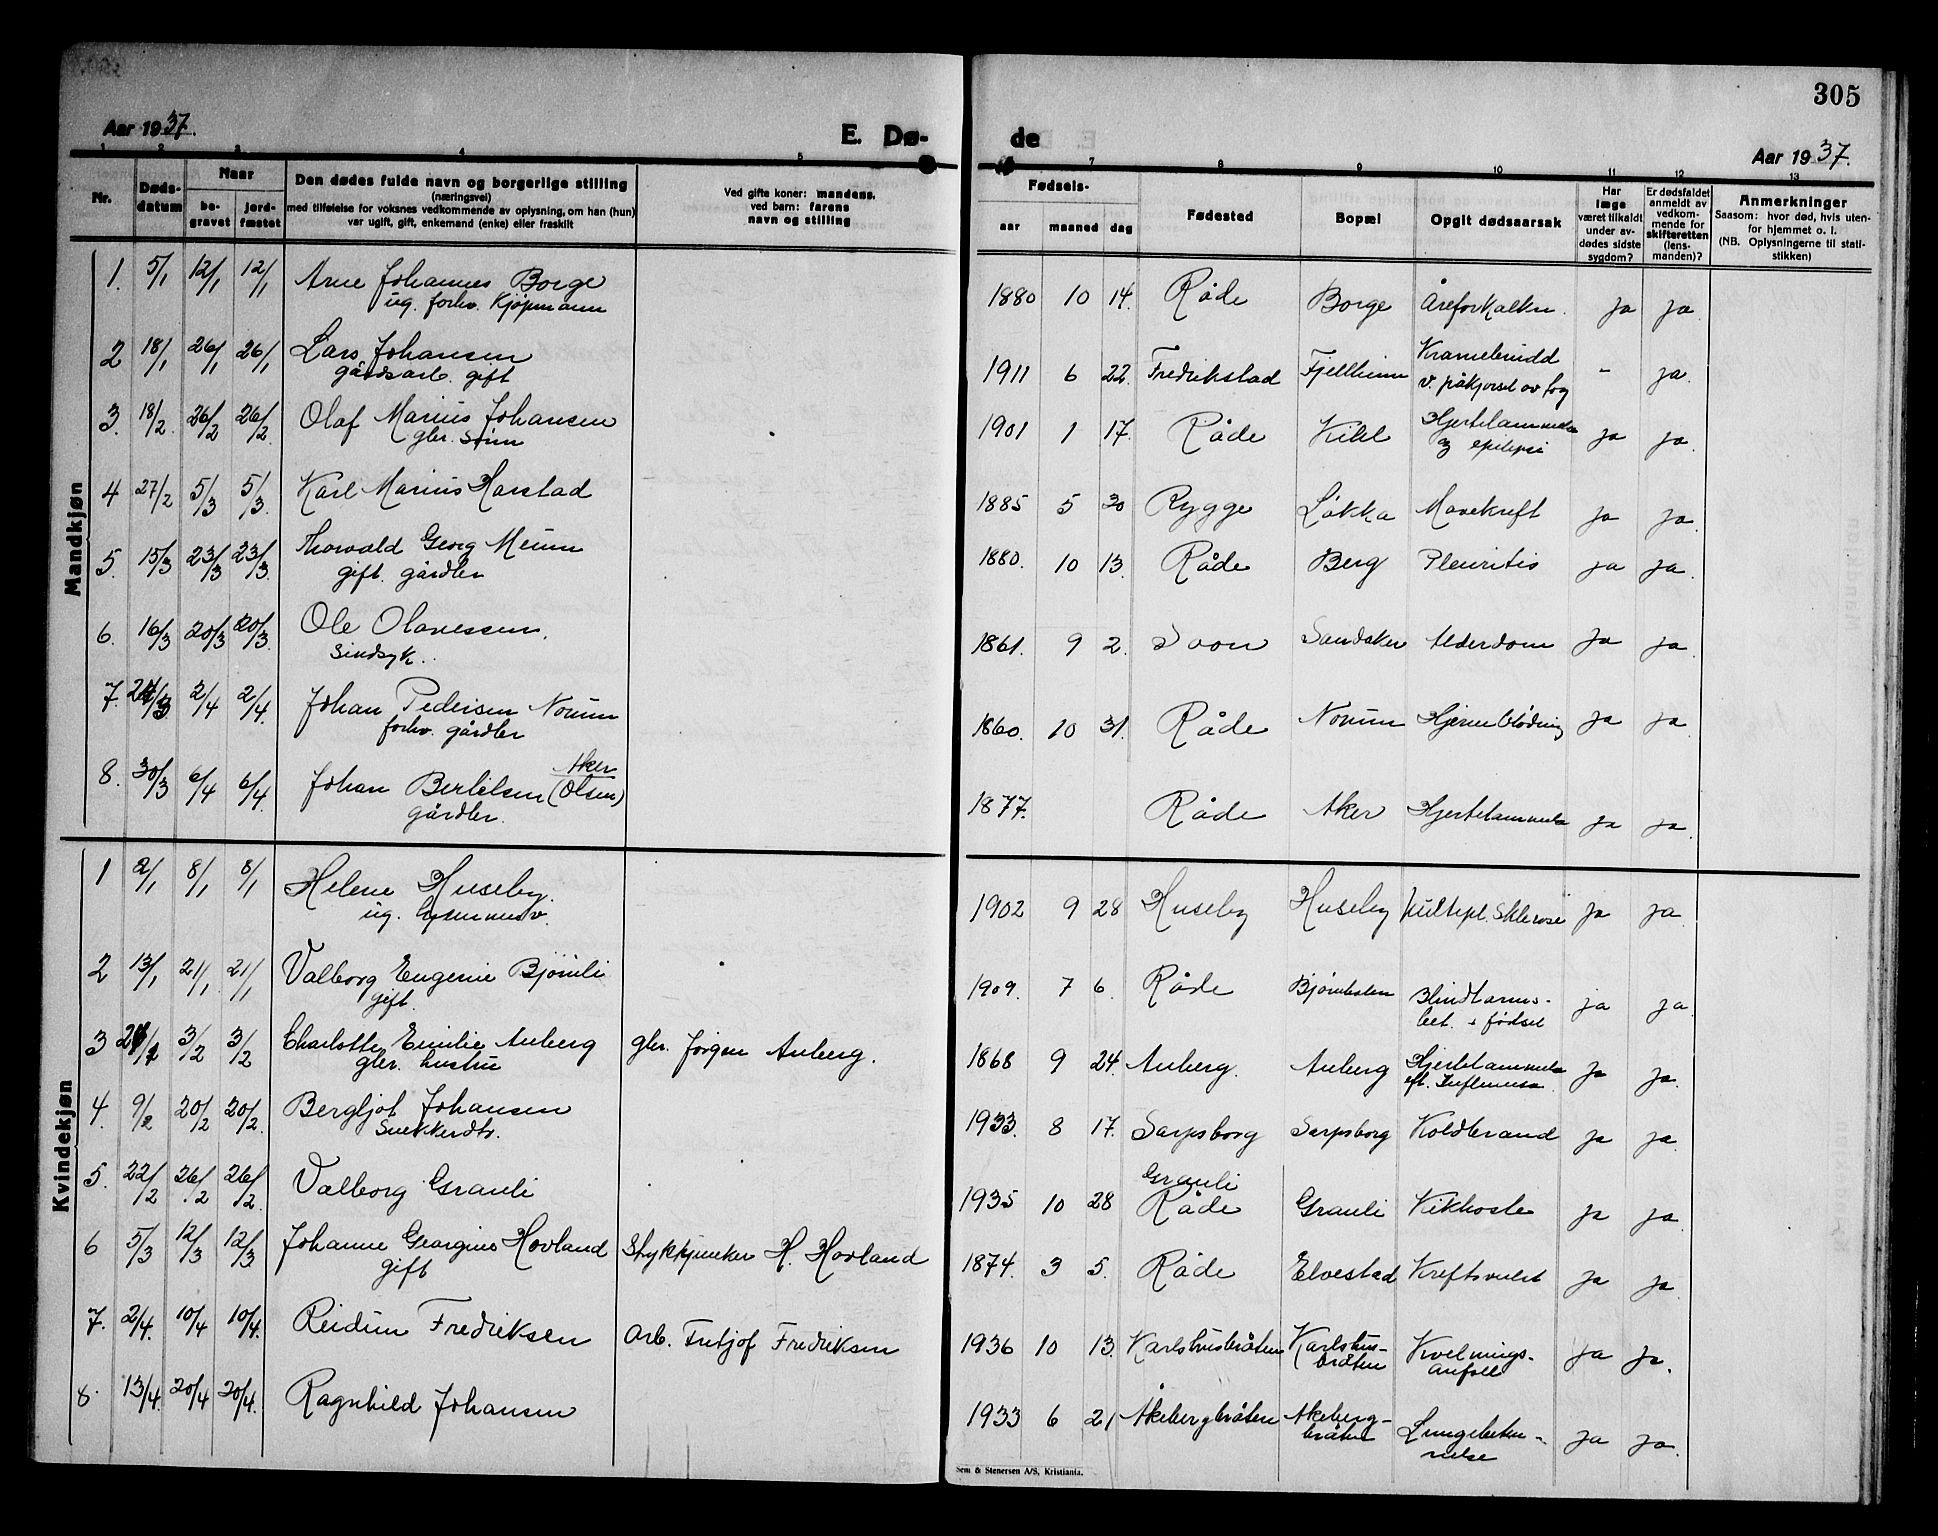 305
Aar 1937.
E. Dø-
de
Aar 1937.
1 2 3. 4 5 7 8 9 10 11 12 13
Nr.
Døds-
datum
Naar
be-
gravet
jord-
fæstet
Den dødes fulde navn og borgerlige stilling
(næringsvei)
med tilføielse for voksnes vedkommende av oplysning, om han (hun)
var ugift, gift, enkemand (enke) eller fraskilt
Ved gifte koner: mandens,
ved barn: farens
navn og stilling
Fødsels-
aar maaned dag
Fødested
Bopæl
Opgit dødsaarsak
Har
læge
været tilkaldt
under av-
dødes sidste
sygdom?
Er dødsfaldet
anmeldt av
vedkom-
mende for
skifteretten
(lens-
manden)?
Anmerkninger
Saasom: hvor død, hvis uten-
for hjemmet o. l.
(NB. Oplysningerne til stati-
stikken)
Mandkjøn
1. 5/1 12/1 12/1 Arne Johannes Borge
ug. forhv. Kjøpmann
1880 10 14. Råde Borge Åreforkalkn. ja ja.
2 18/1 26/1 26/1 Lars Johansen
gårdsarb. gift
1911 6 22. Fredrikstad Fjellheim
v. påkjørsel av tog - ja.
3. 18/2. 26/2 26/2. Olaf Marius Johansen
gbr. sønn
1901 1 17. Råde Kihl Hjertelammelse
og epilepsi ja ja.
4 27/2 5/3 5/3. Karl Marius Harstad
1885 5 30 Rygge Løkka Mavekreft ja ja.
5. 15/3 23/3 23/3. Thorvald Georg Meum
gift. gårdbr
1880. 10 13. Råde Berg Pleuritis ja ja.
6. 16/3 20/3 20/3. Ole Olavessen.
Sindsyk.
1861. 9 2. Soon Sandaker Alderdom ja ja.
7. /3 2/4 2/4. Johan Pedersen Norum
forhv. gårdbr
1860. 10 31. Råde Norum Hjerneblødning ja ja
8. 30/3 6/4 6/4. Johan Bertelsen (Olsen)
Aker
gårdbr.
1877. Råde Aker Hjertelammelse ja ja.
Kvindekjøn
1 2/1 8/1 8/1 Helene Huseby.
ug.
1902 9 28 Huseby Huseby Multipl. Sklerose ja ja
2 13/1 21/1. 21/1 Valborg Eugenie Bjørnli
gift.
1909. 7 6. Råde Blindtarms-
bet. + fødsel ja ja.
3 3/2 3/2 Charlotte Emilie Anberg
gbr. hustru
gbr. Jørgen Anberg.
1868 9 24. Anberg. Anberg Hjertelammelse
eft. Influensa ja ja.
4. 9/2 20/2 20/2. Bergljot Johansen
Snekkerdtr.
1933. 8 17. Sarpsborg Sarpsborg Koldbrand ja ja.
5. 22/2 26/2 26/2. Valborg Grauli
Grauli
1935 10 28 Råde Grauli Kikhoste ja ja.
6 5/3 12/3 12/3 Johanne Georgine Hovland
gift
Stykkjunker H. Hovland
1874. 3 5. Råde Elvestad Kreftsvulst ja ja.
7. 2/4. 10/4 10/4. Reidun Fredriksen
Arb. Fritjof Fredriksen
1936 10 13. Karlshusbråten Karlshus-
bråten Kvelnings-
anfall ja ja.
8. 13/4. 20/4 20/4. Ragnhild Johansen
1933 6 21 Åkebergbråten Akeberg-
bråten Lungebeten-
nelse ja ja.
Sem & Stenersen A/S, Kristiania.